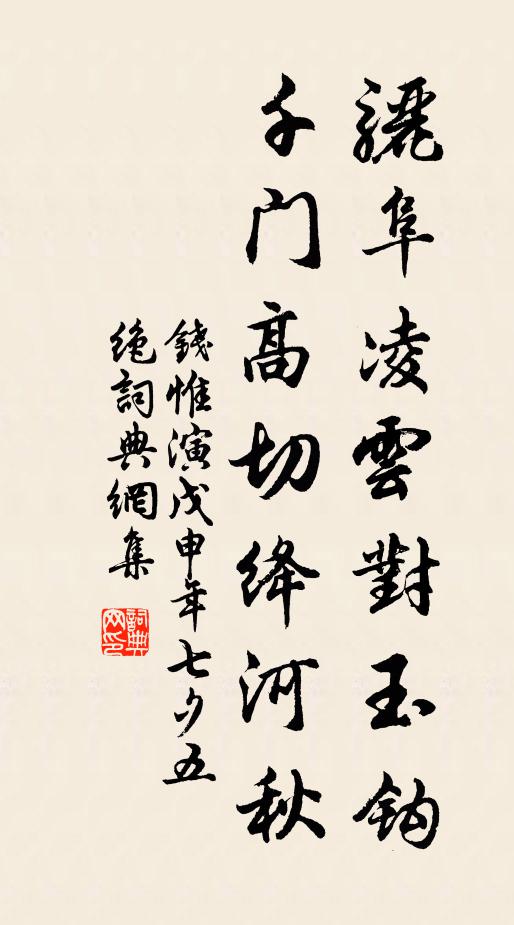 驪阜凌雲對玉鈎
千门高切绛河秋
錢惟演戊申年七夕五
绝詞典網集
詞典网印